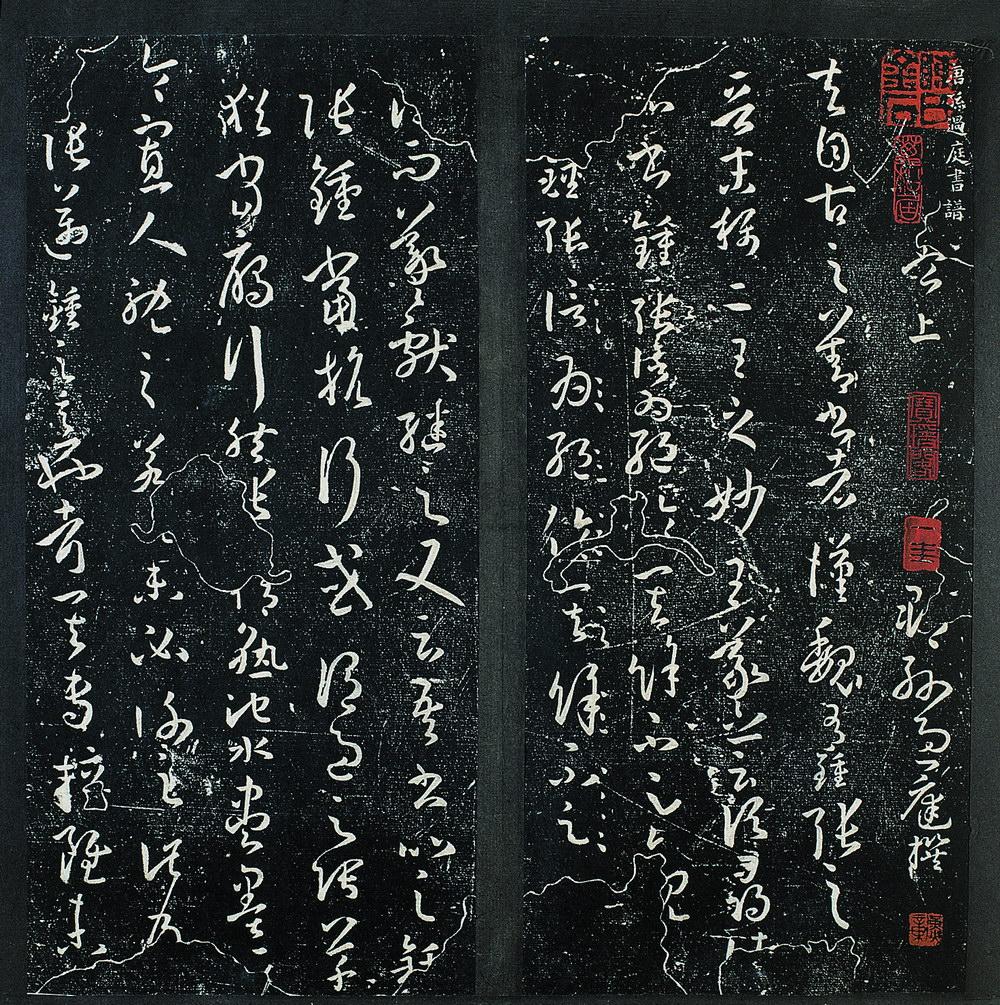 唐孫過庭書譜
卷上 吳郡孫過庭撰
夫自古之善書者漢魏有鍾張之
晉末稱二王之妙王羲之云頃尋諸
名書鍾張信為絕倫其餘不足觀
鍾張信為絕倫其餘不足
沒而羲獻繼之又云吾書比之鍾
張鍾當抗行或謂過之張草
猶當雁行然張精熟池水盡墨
令寡人耽之若此未必謝之此乃
推張邁鍾之意也考其專擅雖未